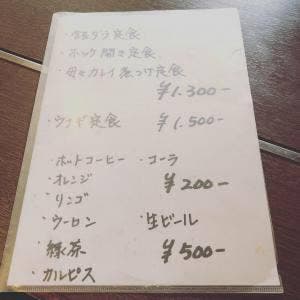 ・ ダラ定食
・ホッケ開き定食
・ カレイ煮つけ定食
¥1.300-
・ウナギ定食 ¥1.500-
・ホットコーヒー ・コーラ
・オレンジ ¥200-
・リンゴ
・ウーロン ・生ビール
・緑茶 ¥500-
・カルピス